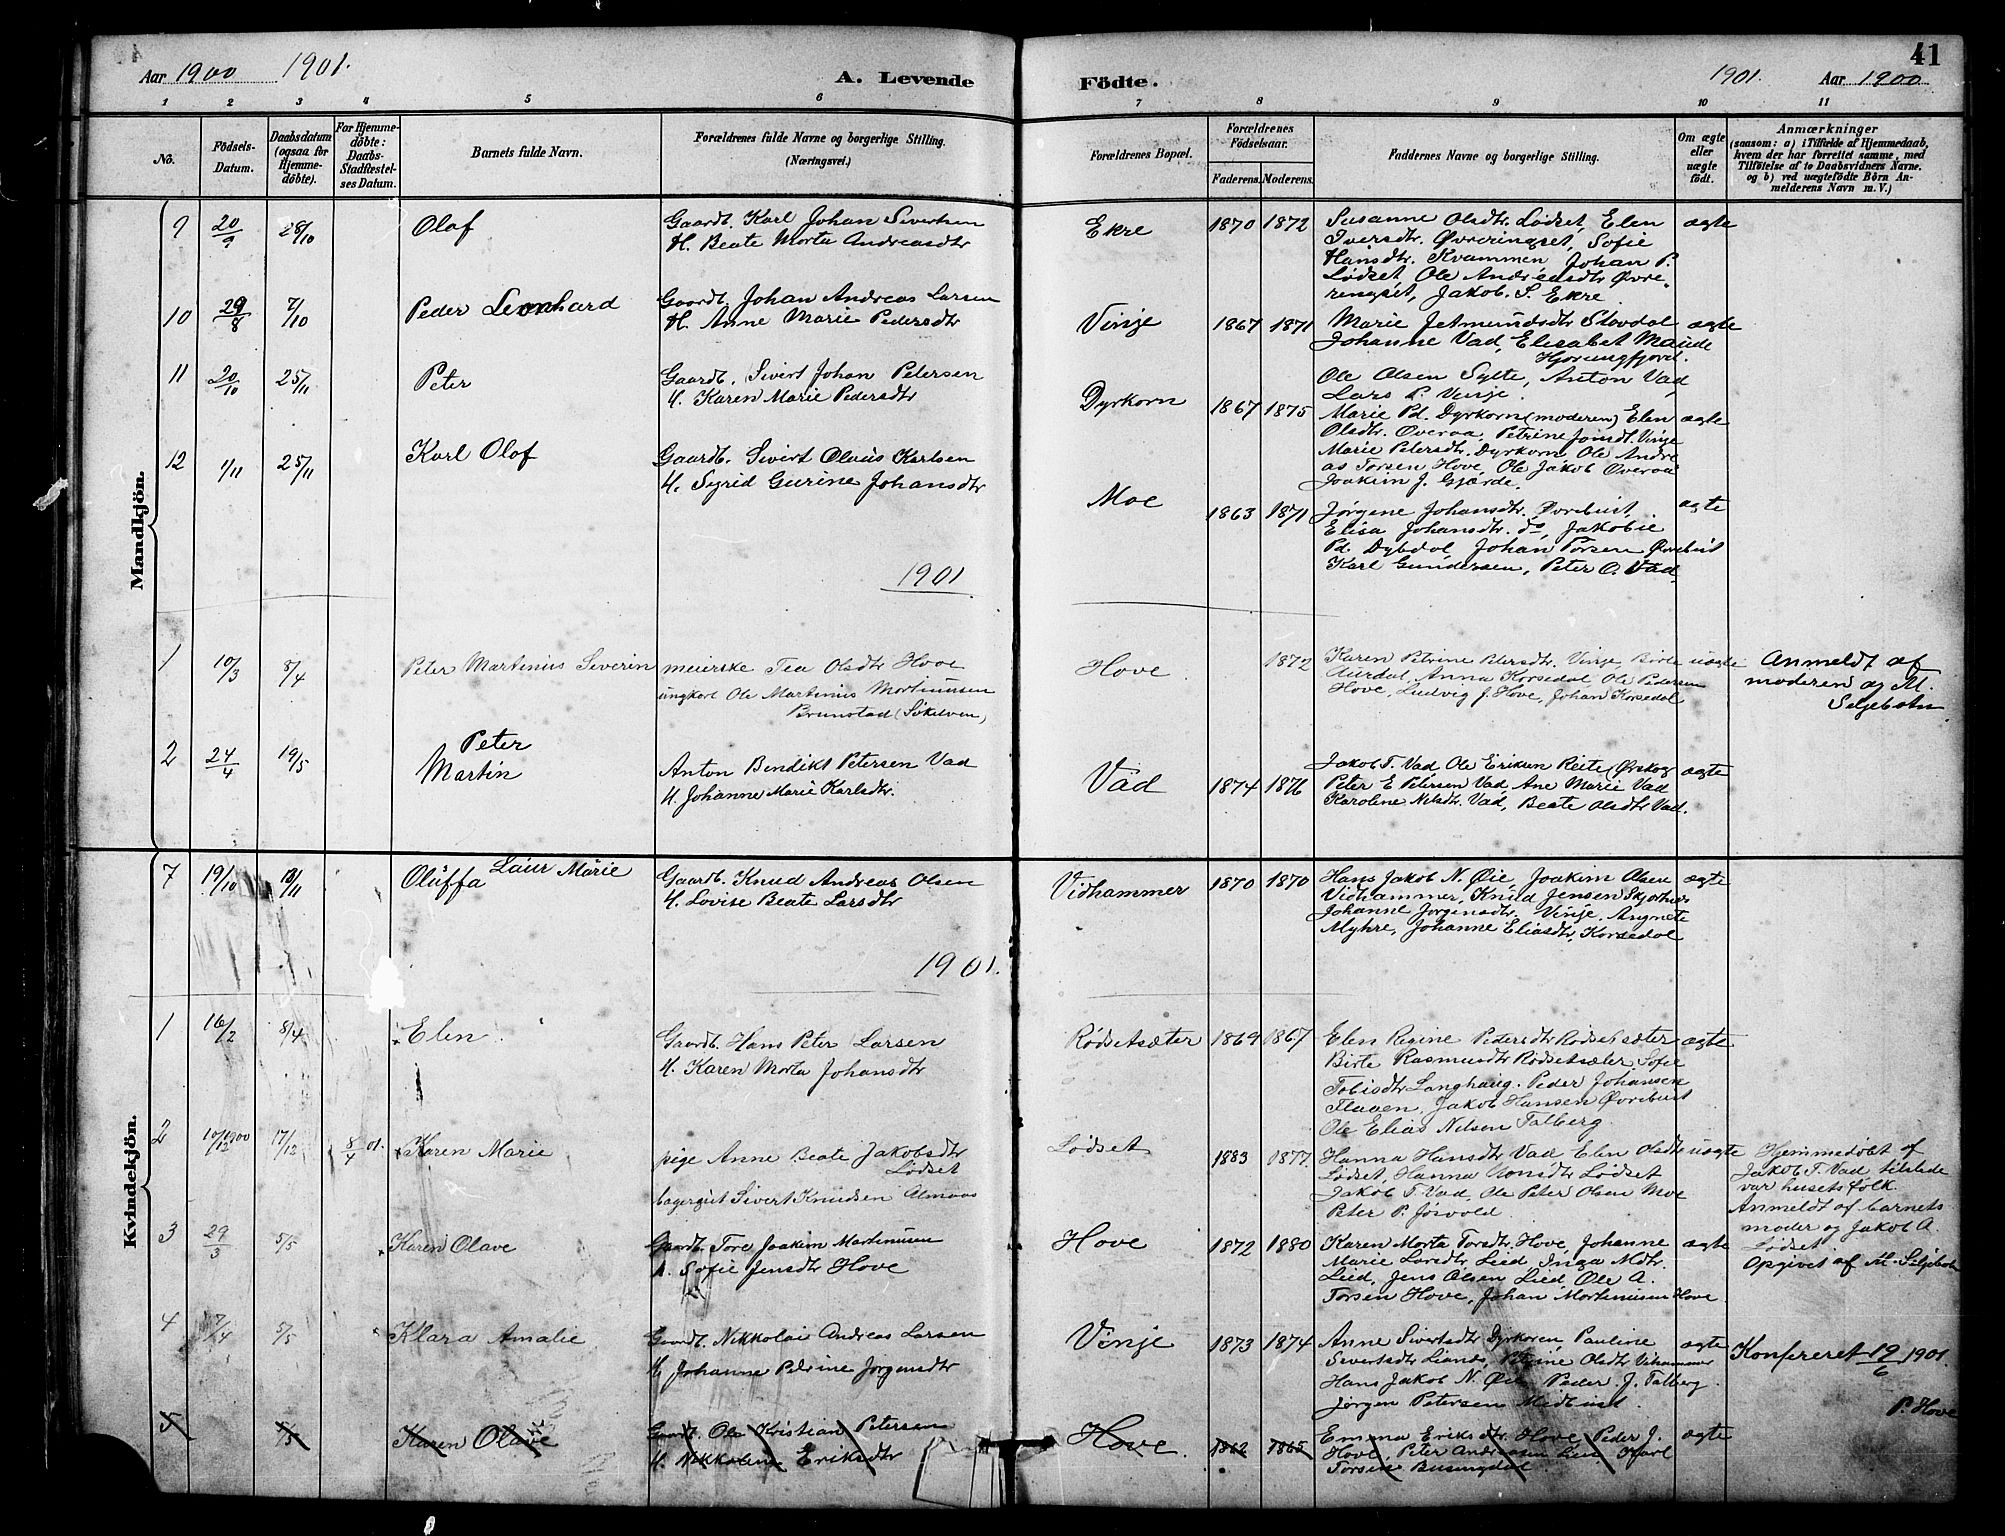 41
Aar 1900 1901.
A. Levende Födte.
1901. Aar 1900
1 2 3 4 5 6 7 8 9 10 11
No.
Födsels-Datum.
Daabsdatum (ogsaa for Hjemme-döbte).
For Hjemme-döbte: Daabs-Stadfestel-ses Datum.
Barnets fulde Navn.
Forældrenes fulde Navne og borgerlige Stilling.
(Næringsvei.)
Forældrenes Bopæl.
Forældrenes Födselsaar.
Faderens. Moderens.
Faddernes Navne og borgerlige Stilling.
Om ægte eller uægte födt.
Anmærkninger
(saasom: a) i Tilfælde af Hjemmedaab,
hvem der har forrettet samme, med
Tilföielse af to Daabsvidners Navne.
og b) ved uægtefödte Börn An-
melderens Navn m. V.)
Mandkjön.
9 20/9 28/10 Olaf
Gaardb. Karl Johan Sivertsen
H. Beate Marta Andreasdtr
Ekre 1870 1872
Susanne Olsdtr. Lødset, Elen
Iversdtr. Øvreringset, Sofie
Hansdtr. Kvammen, Johan P.
Lødset Ole Andreasdtr Øvre-
ringset, Jakob. S. Ekre
ægte
10 29/8 7/10 Peder Leonhard
Gaardb. Johan Andreas Larsen
H. Anne Marie Pedersdtr
Vinje 1867 1871
Marie Jetmundsdtr Stavdal
Johanne Vad, Elisabet Maude
Hjørungfjord.
Ole Olsen Sylte, Anton Vad
Lars P. Vinje.
ægte
11 20/10 25/11 Peter
Gaardb. Sivert Johan Petersen
H. Karen Marie Pedersdtr
Dyrkorn 1867 1875
Marie Pd. Dyrkorn (moderen) Elen
Olsdtr. Overaa, Petrine Jonsdt. Vinje
Marie Petersdtr. Dyrkorn, Ole Andre
as Torsen Hove, Ole Jakob Overaa
Joakim J. Gjærde.
ægte
12 1/11 25/11 Karl Olaf
Gaardb. Sivert Olaus Karlsen
H. Sigrid Gurine Johansdtr
Moe 1863 1871
Jørgene Johansdtr. Øvrebust,
Elisa Johansdtr. do, Jakobie
Pd. Dybdal, Johan Torsen Øvrebust
Karl Gundersen, Peter O. Vad
ægte
1901
1 10/3 8/4 Peter Martinius Severin
meierske Tea Olsdtr Hove
ungkarl Ole Martinus Martinussen
Brunstad (Søkelven)
Hove 1872
Karen Petrine Petersdtr. Vinje, Birte
Aurdal, Anna Korsedal Ole Pedersen
Hove, Ludvig J. Hove, Johan Korsedal
uægte
Anmeldt af
moderen og M.
Seljebotn
2 24/4 19/5 Peter
Martin
Anton Bendikt Petersen Vad
H. Johanne Marie Karlsdtr.
Vad 1874 1876
Jakob T. Vad Ole Eriksen Reite (Ørskog
Peter E Petersen Vad, Ane Marie Vad
Karoline Nilsdtr. Vad, Beate Olsdtr Vad.
ægte
Kvindekjön.
7 19/10 18/11 Oluffa Laur Marie
Gaardb. Knud Andreas Olsen
H. Lovise Beate Larsdtr
Vidhammer 1870 1870
Hans Jakob N. Øie, Joakim Olsen
Vidhammer, Knud Jensen Skjorthus
Johanne Jørgensdtr. Vinje, Angnete
Myhre, Johanne Eliasdtr, Korsedal
ægte
1901.
1 16/2 8/4 Elen
Gaardb. Hans Peter Larsen
H. Karen Marta Johansdtr
Rødsetsæter 1869 1867
Elen Regine Pedersdtr Rødsetsæter
Birte Rasmusdtr Rødsetsæter, Sofie
Tobisdtr Langhaug. Peder Johansen
Flaaen, Jakob Hansen Øvrebust
Ole Elias Nilsen Talberg.
ægte
2 10/12 1900 17/12 8/4 01. Karen Marie
pige Anne Beate Jakobsdtr
Lødset
bagergut Sivert Knudsen Almaas
Lødset 1883 1877
Hanna Hansdtr Vad Elen Olsdtr
Lødset, Hanna Jonsdtr Lødset
Jakob T. Vad, Ole Peter Olsen Moe
Peter P. Jøsvold
uægte
Hjemmedøbt af
Jakob T. Vad tilstede
var husets folk.
Anmeldt af barnets
moder og Jakob A.
Lødset.
Opgivet af M. Seljebotn
3 29/3 5/5 Karen Olave
Gaardb. Tore Joakim Martinusen
H. Sofie Jensdtr Hove
Hove 1872 1880
Karen Marta Torsdtr. Hove, Johanne
Marie Larsdtr Lied Inga Mdtr.
Lied, Jens Olsen Lied Ole A.
Torsen Hove, Johan Martinusen Hove.
ægte
4 7/4 5/5 Klara Amalie
Gaardb. Nikkolai Andreas Larsen
H. Johanne Petrine Jørgensdtr
Vinje 1873 1874
Anne Sivertsdtr Dyrkoren, Pauline
Sivertsdtr Lianes, Regine Olsdtr Vihammer
Hans Jakob N. Øie Peder J. Talberg
Jørgen Petersen Midbust.
ægte
Konfereret 19/6 1901
P. Hove
5 5/5 Karen Olave
Gaardb. Ole Kristian Petersen
H. Nikkoline Eriksdtr
Hove. 1862 1865
Emma Eriksdtr. Hove Peder J.
Hove, Peter Andreasen Lien Karl
Torsen Busengdal
ægte